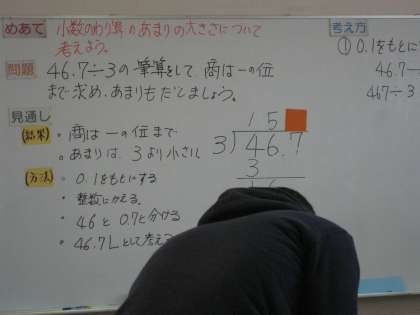 めあて 小数のわり算のあまりの大きさについて
考えよう。
問題 46.7÷3の筆算をして、商は一の位
まで求め、あまりもだしましょう。
見通し
(結果) 。商は一の位まで
。あまりは、3より小さい
(方法) 。0.1をもとにする
。整数にかえる。
。46と0.7と分ける
。46.7Lとして考え
15
3)46.7
3
考え方
① 0.1をもとに
46.7
467÷3